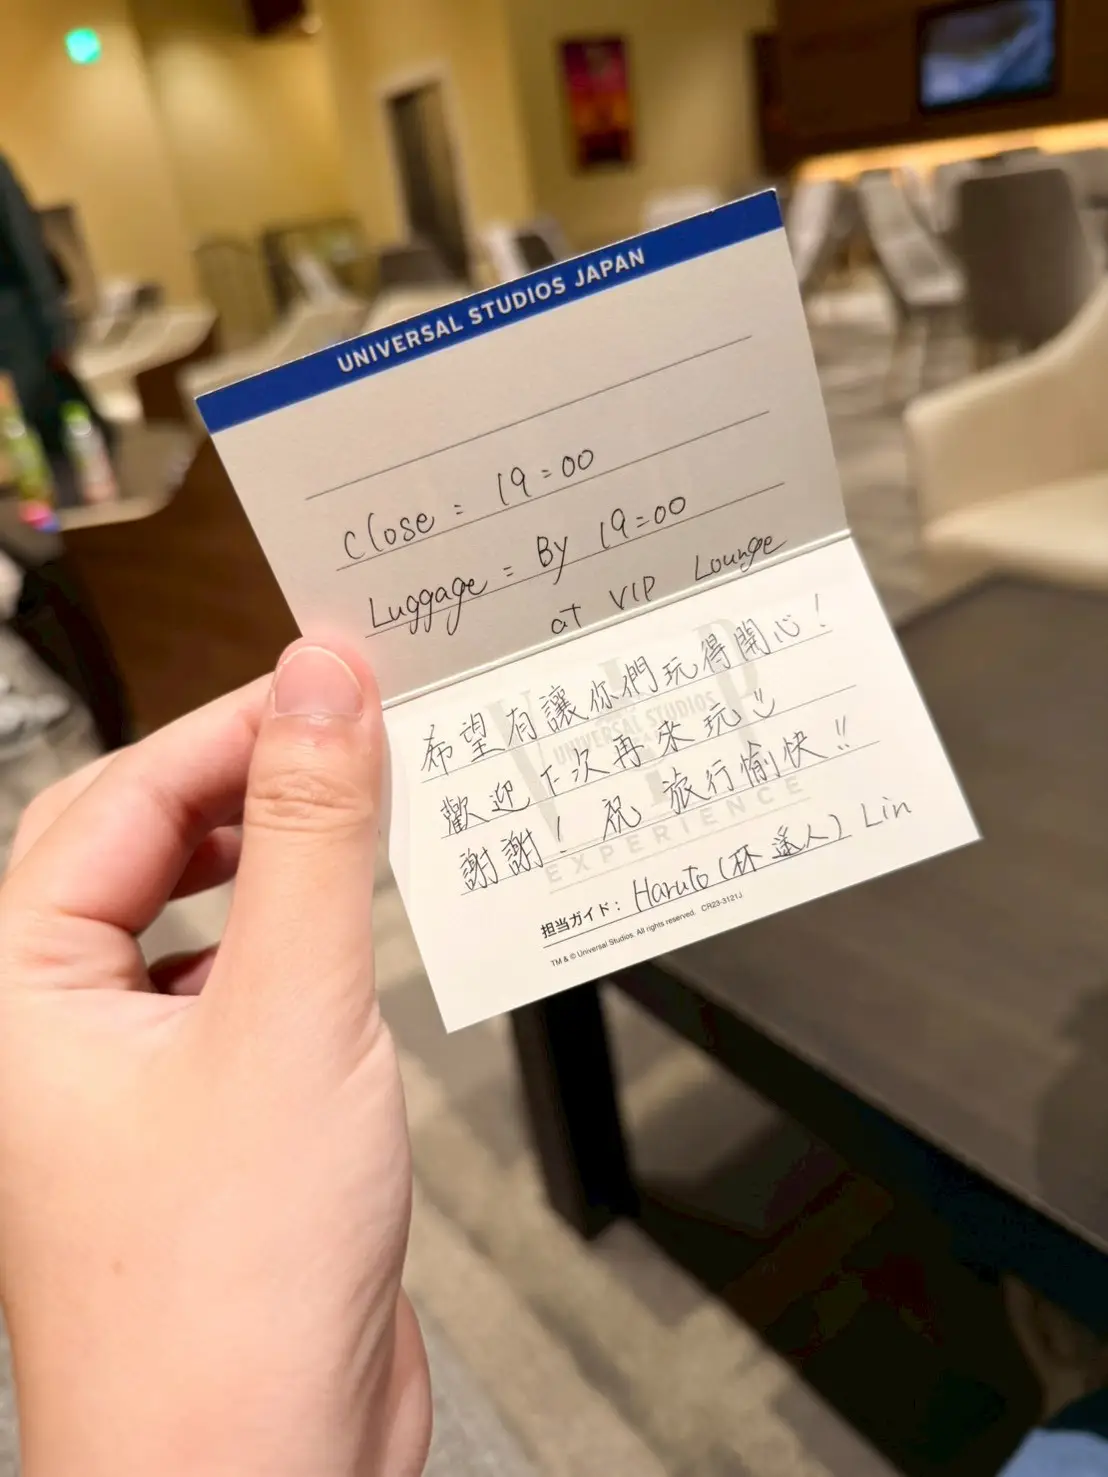 UNIVERSAL STUDIOS JAPAN
Close : 19:00
Luggage : By 19:00
at VIP Lounge
希望有讓你們玩得開心！
歡迎下次再來玩
謝謝！祝旅行愉快!!
VIP
UNIVERSAL STUDIOS
EXPERIENCE
担当ガイド： Haruto (林遥人) Lin
TM & © Universal Studios. All rights reserved. CR23-3121J